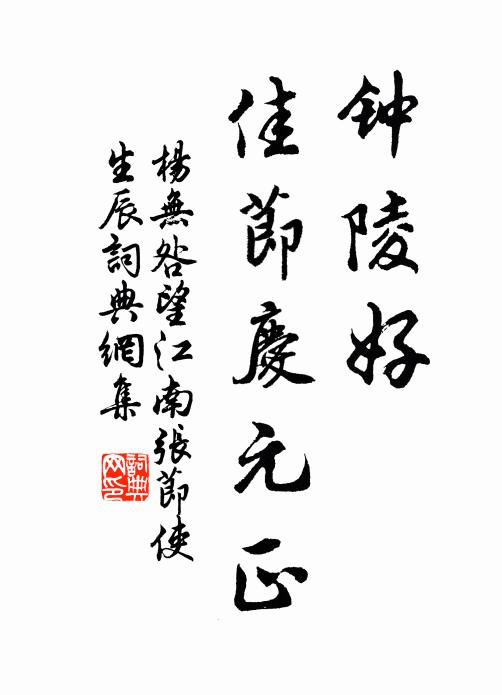 钟陵好
佳節慶元正
楊無咎望江南張節使
生辰詞典網集
詞典
网印